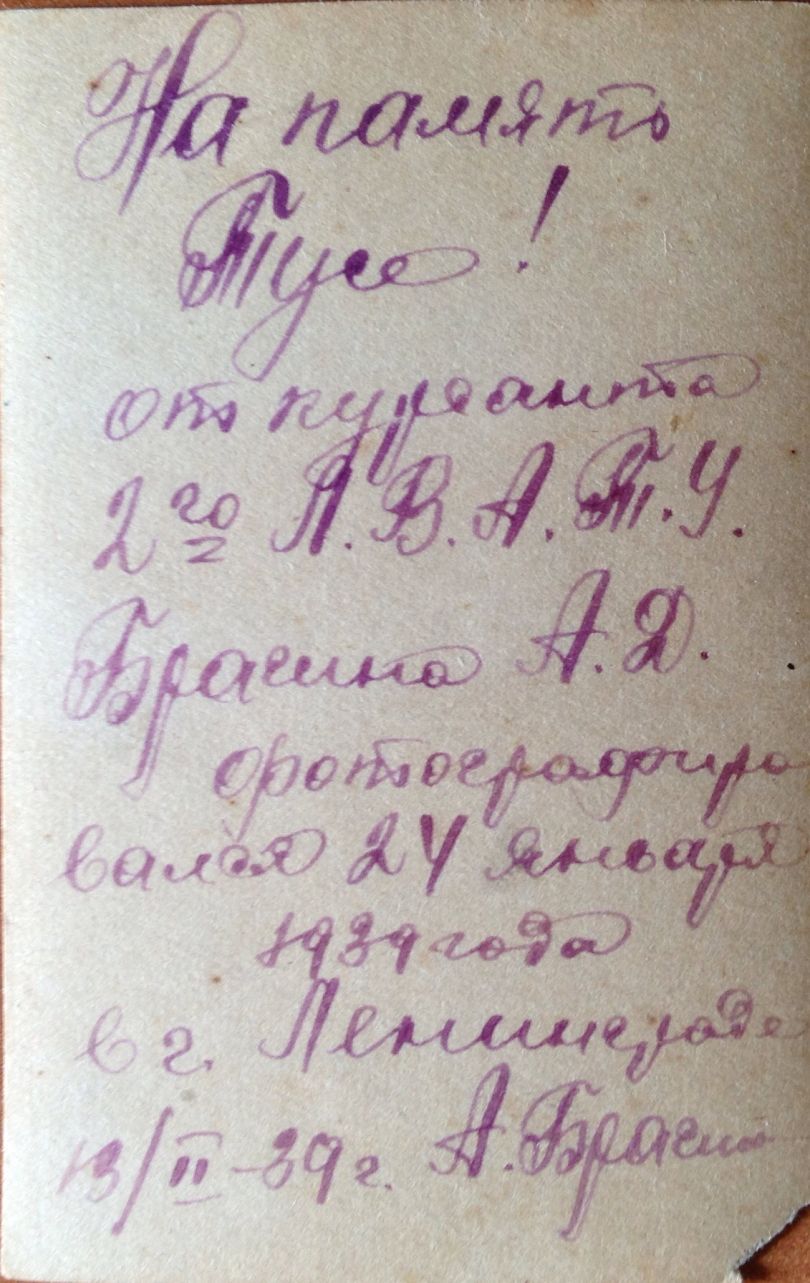 На память
Тусе!
от курсанта
2го Л.В.А.Т.У.
Брагина А.Д.
фотографиро
вался 24 января
1939 года
в г. Ленинграде
13/II-39 г. А. Брагин